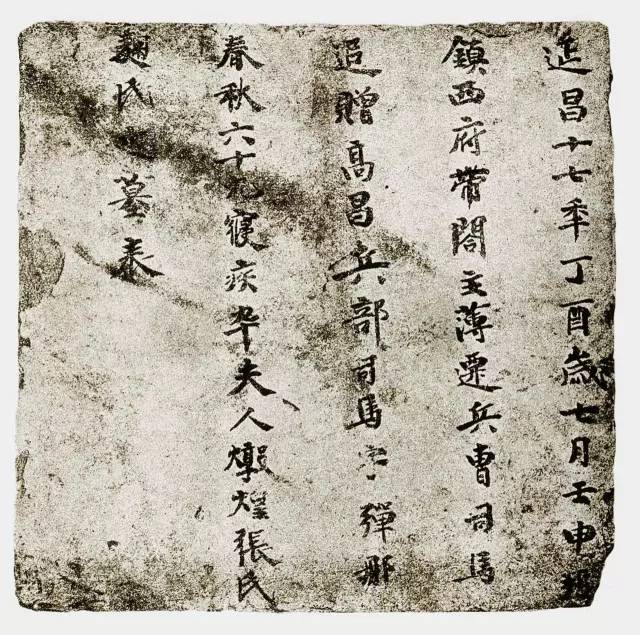 延昌十七年丁酉歲七月壬申
鎮西府帶閤主薄遷兵曹司馬
追贈高昌兵部司馬字彈那
春秋六十九寢疾卒夫人燉煌張氏
麴氏墓表